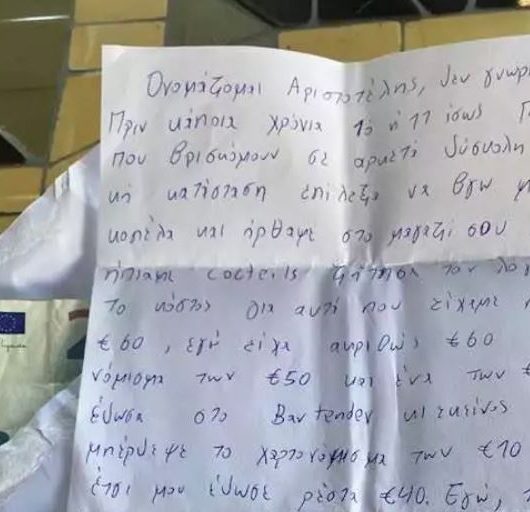 Ονομάζομαι Αριστοτέλης, δεν γνωρι
Πριν κάποια χρόνια 10 ή 11 ίσως
που βρισκόμουν σε αρκετά δύσκολη
κή κατάσταση επέλεξα να βγω
κοπέλα και ήρθαμε στο μαγαζί σου
ήπιαμε coctails ζήτησα τον λο
το κόστος για αυτά που είχαμε
€60, εγώ είχα ακριβώς €60
νόμισμα των €50 και ένα των €
έδωσα στο Bartender κι εκείνος
μπέρδεψε το χαρτονόμισμα των €10
έτσι μου έδωσε ρέστα €40. Εγώ,